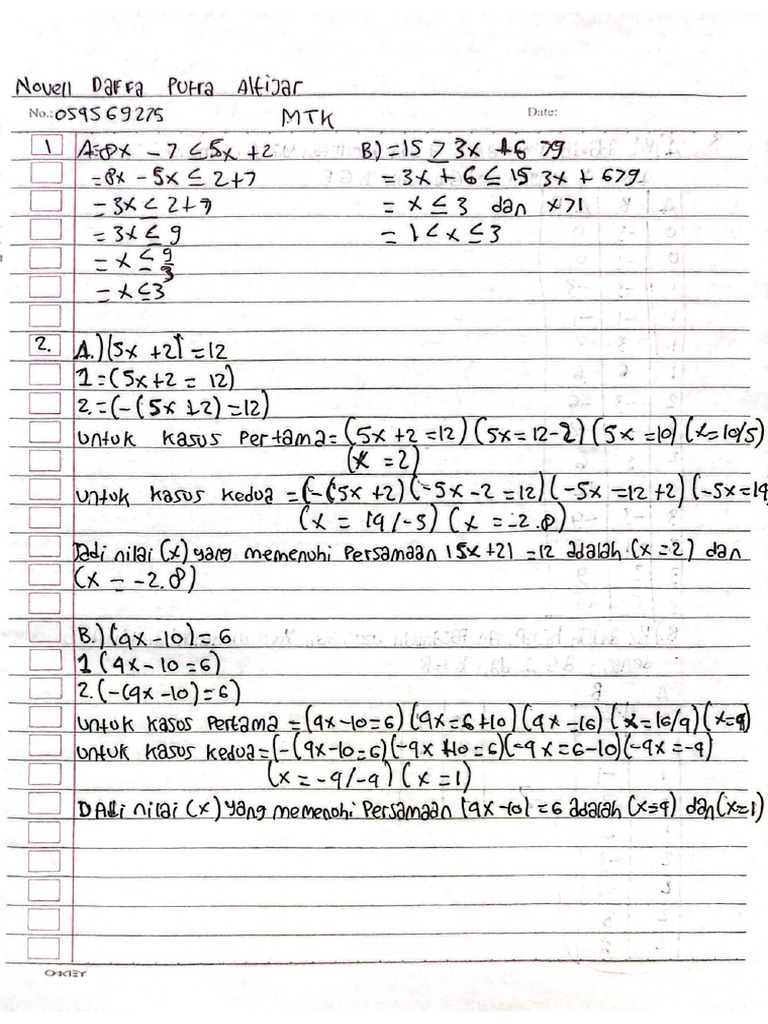 Novell Daffa Putra Alfijar
No.: 059569275 MTK Date:
1 A=8x - 7 ≤ 5x + 2 B.) = 15 ≥ 3x + 6 > 9
= 8x - 5x ≤ 2+7 = 3x + 6 ≤ 15 3x + 6 > 9
= 3x ≤ 2+7 = x ≤ 3 dan x > 1
= 3x ≤ 9 = 1 < x ≤ 3
= x ≤ 9/3
= x ≤ 3
2. A.) |5x + 2| = 12
1 = (5x+2 = 12)
2. = (-(5x+2) = 12)
untuk kasus Pertama = (5x + 2 = 12) (5x = 12-2) (5x = 10) (x = 10/5)
(x = 2)
untuk kasus kedua = (-(5x + 2) (-5x - 2 = 12) (-5x = 12 + 2) (-5x = 14
(x = 14/-5) (x = -2.8)
Jadi nilai (x) yang memenuhi Persamaan |5x+2| = 12 adalah (x = 2) dan
(x = -2.8)
B.) (4x - 10) = 6
1 (4x - 10 = 6)
2. (-(4x - 10) = 6)
untuk kasus Pertama = (4x - 10 = 6) (4x = 6 + 10) (4x = 16) (x = 16/4) (x = 4)
untuk kasus kedua = (-(4x - 10 = 6) (-4x + 10 = 6) (-4x = 6 - 10) (-4x = -4)
(x = -4/-4) (x = 1)
DADi nilai (x) yang memenuhi Persamaan |4x - 10| = 6 adalah (x = 4) dan (x = 1)
OKEY